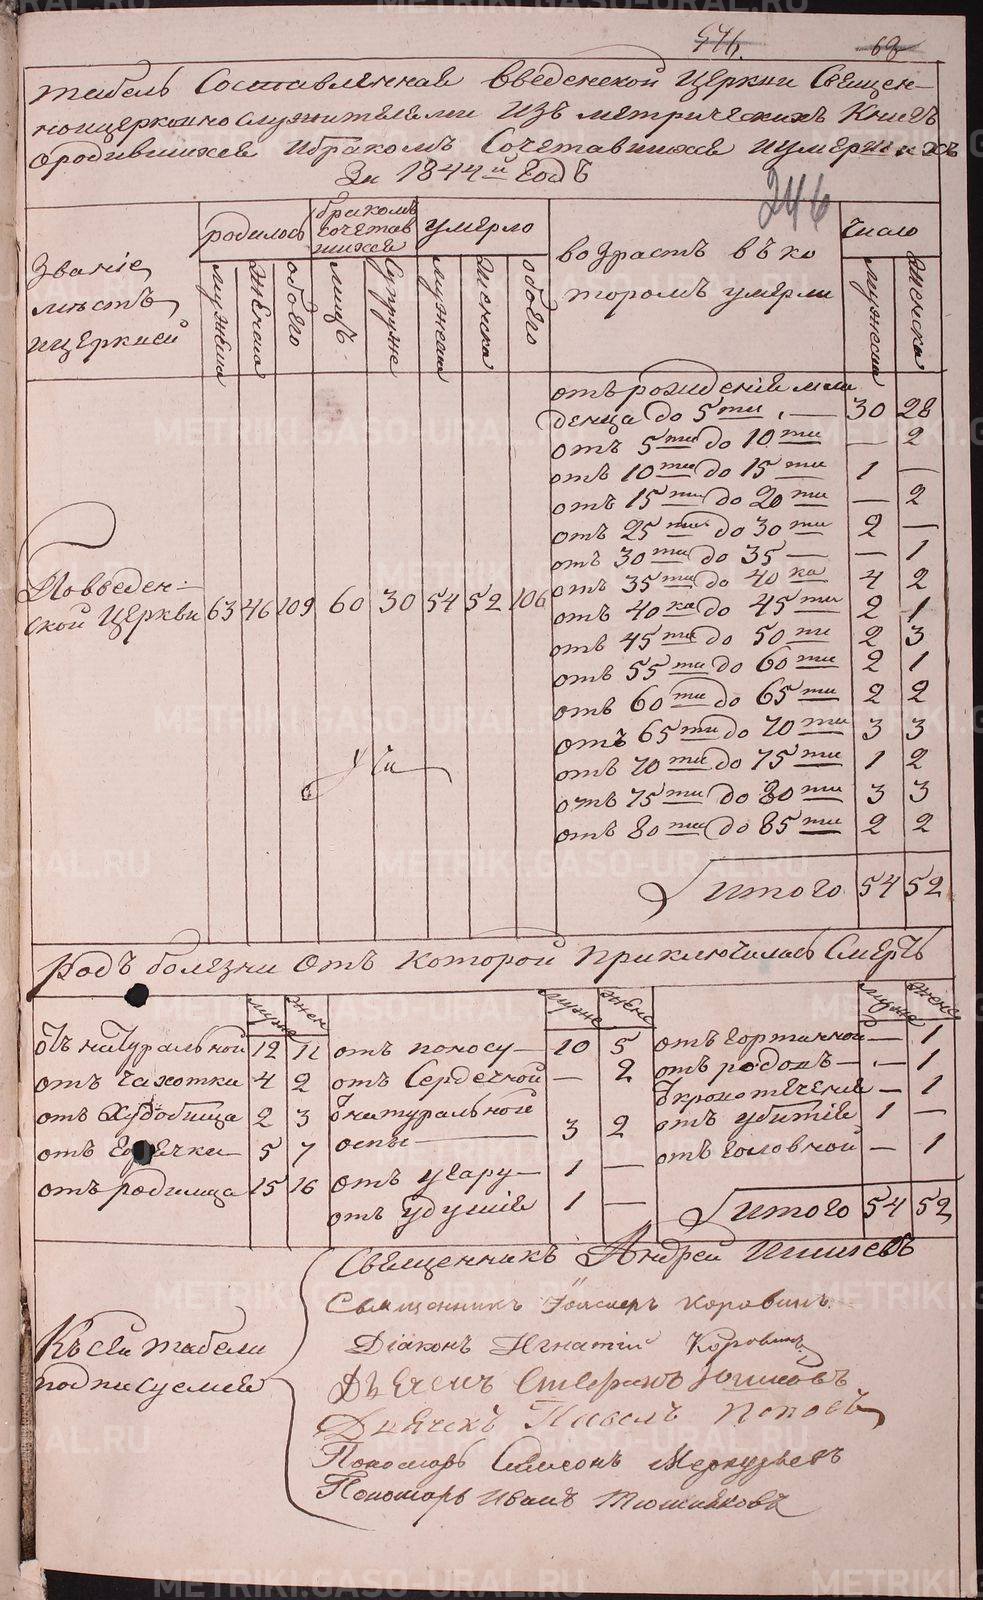 METRIKI.GASO-URAL.RU
68
табель Составленная Введенской Церкви Священ-
ноцерковнослужителями Изъ метрическихъ Книгъ
ородившихся ибракомъ Сочетавшихся иумершихъ
За 1844й Годъ
246
Званіе
мѣстъ
ицерквей
родилось
бракомъ
сочетав
шихся
умерло
возрастъ въ ко
торомъ умерли
число
мужеска
женска
обоего
лицъ
Супруже
мужеска
женска
обоего
мужеска
женска
отъ рожденія мла
денца до 5ти — 30 28
отъ 5ти до 10ти — 2
отъ 10ти до 15ти 1 —
отъ 15ти до 20ти — 2
отъ 25ти до 30ти 2 —
отъ 30ти до 35 — — 1
отъ 35ти до 40ка 4 2
отъ 40ка до 45ти 2 1
отъ 45ти до 50ти 2 3
отъ 55ти до 60ти 2 1
отъ 60ти до 65ти 2 2
отъ 65ти до 70ти 3 3
отъ 70ти до 75ти 1 2
отъ 75ти до 80ти 3 3
отъ 80ти до 85ти 2 2
Итого 54 52
Повведен-
ской Церкви 63 46 109 60 30 54 52 106
Родъ болезни Отъ Которой приключилась Смерть
муже жен муже жене муже жене
отъ натуральной 12 11
отъ чахотки 4 2
отъ 2 3
отъ Горячки 5 7
отъ родимца 15 16
отъ поносу — 10 5
отъ Сердечной — 2
натуральной
оспы — 3 2
отъ угару — 1 —
отъ удушія 1 —
отъ Гортанной — 1
отъ родовъ — 1
кровотеченія — 1
отъ убитія 1 —
отъ головной — 1
Итого 54 52
Къ сей табели
подписуемся
Священникъ Андрей
Священникъ Коровинъ
Діаконъ Игнатій Коровинъ
Дьячекъ Стефанъ
Дьячекъ Павелъ Поповъ
Пономарь Симеонъ Меркурьевъ
Пономарь Иванъ